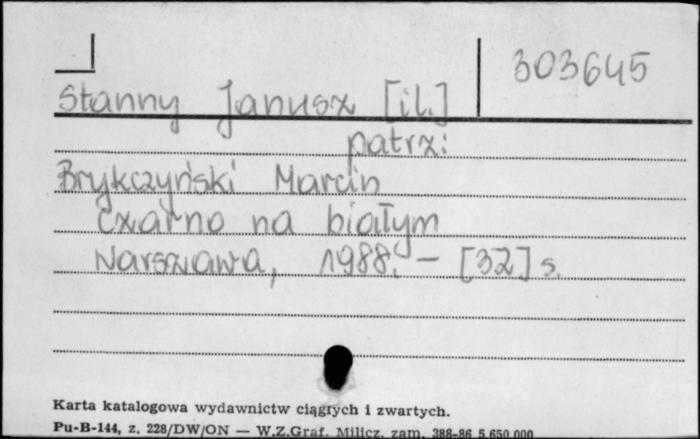 303645
Stanny Janusz [il.]
patrz:
Brykczyński Marcin
Czarno na białym
Warszawa, 1988. - [32] s.
Karta katalogowa wydawnictw ciągłych i zwartych.
Pu-B-144, z. 228/DW/ON — W.Z.Graf. Milicz, zam. 388-86 5 650 000